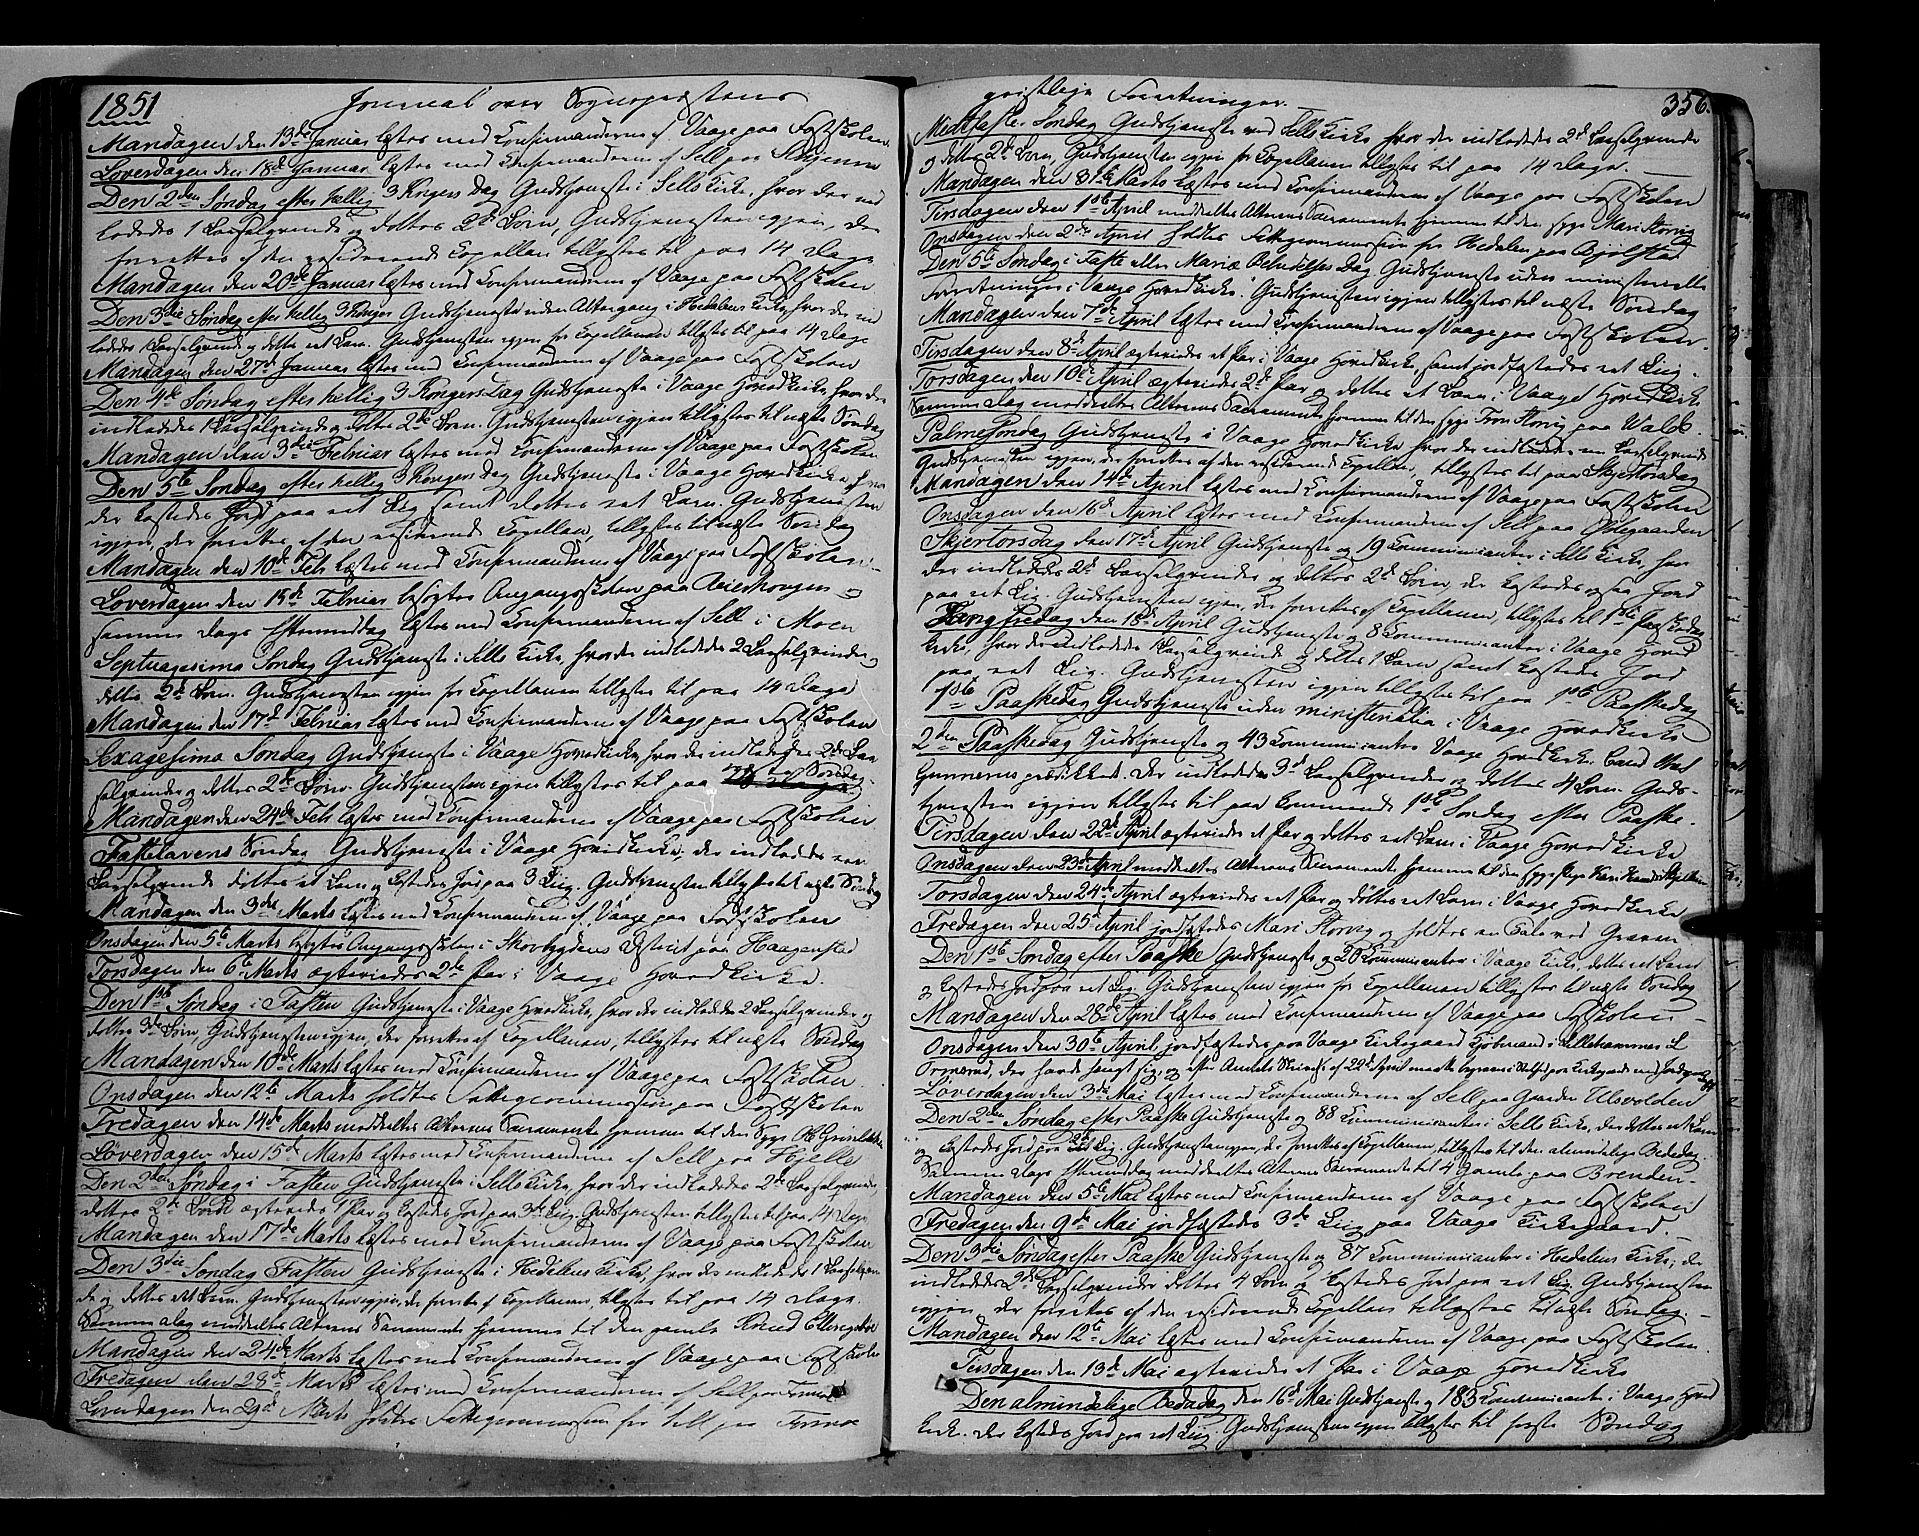 1851
Journal over Sognepræstens
Mandagen den 13de Januar læstes med Confirmanderne af Vaage paa Fastskolen
Løverdagen den 18d Januar læstes med Confirmanderne af Sell paa
Den 2den Søndag efter hellig 3 Kongers Dag Gudstjeneste i Sells Kirke, hvor der ind
lededes 1 Barselqvinde og døbtes 2de Børn, Gudstjenesten igjen, der
forrettes af den residerende Capellan tillystes til paa 14 Dage
Mandagen den 20de Januar læstes med Confirmanderne af Vaage paa Fastskolen
Den 3die Søndag efter hellig 3 Konger Gudstjeneste uden Altergang i Hedalens Kirke, hvor der ind
lededes 1 Barselqvinde og døbtes eet Barn. Gudstjenesten igjen for Capellanen tillystes til paa 14 Dage
Mandagen den 27d Januar læstes med Confirmanderne af Vaage paa Fastskolen
Den 4de Søndag efter hellig 3 Kongers Dag Gudstjeneste i Vaage Hovedkirke, hvor der
indlededes 1 Barselqvinde og døbtes 2de Børn. Gudstjenesten igjen tillystes til næste Søndag
Mandagen den 3die Februar læstes med Confirmanderne af Vaage paa Fastskolen
Den 5te Søndag efter hellig 3 Kongers Dag Gudstjeneste i Vaage Hovedkirke, hvor
der kastedes Jord paa eet Liig samt døbtes eet Barn. Gudstjenesten
igjen, der forrettes af den residerende Capellan, tillystes til næste Søndag
Mandagen den 10de Feb læstes med Confirmanderne af Vaage paa Fastskolen
Løverdagen den 15de Februar besøgtes Omgangsskolen paa
samme Dags Eftermiddag læstes med Confirmanderne af Sell i Moen
Septuagesima Søndag Gudstjeneste i Sells Kirke, hvor der indlededes 2 Barselqvinder og
døbtes 2de Børn. Gudstjenesten igjen for Capellanen tillystes til paa 14 Dage
Mandagen den 17d Februar læstes med Confirmanderne af Vaage paa Fastskolen
Sexagesima Søndag Gudstjeneste i Vaage Hovedkirke, hvor der indlededes 2de Bar
selqvinder og døbtes 2de Børn. Gudstjenesten igjen tillystes til paa Søndag
Mandagen den 24de Feb læstes med Confirmanderne af Vaage paa Fastskolen
Fastelavens Søndag Gudstjeneste i Vaage Hovedkirke, der indlededes een
Barselqvinde døbtes et Barn og kastedes Jord paa 3 Liig. Gudstjenesten tillystes til næste Søndag
Mandagen den 3die Marts læstes med Confirmanderne af Vaage paa Fastskolen
Onsdagen den 5te Marts besøgtes Omgangsskolen i Skovbygdens District paa Haagenstad
Torsdagen den 6te Marts ægteviedes 2de Par i Vaage Hovedkirke.
Den 1ste Søndag i Fasten Gudstjeneste i Vaage Hovedkirke, hvor der indlededes 2 Barselqvinder og
døbtes 3de Børn, Gudstjenesten igjen, der forrettes af Capellanen, tillystes til næste Søndag
Mandagen den 10de Marts læstes med Confirmanderne af Vaage paa Fastskolen
Onsdagen den 12te Marts holdtes Sættecommission paa Fastskolen
Fredagen den 14de Marts meddeeltes Alterens Sacramente hjemme til den Syge Ole
Løverdagen den 15de Marts læstes med Confirmanderne af Sell paa Hjelle
Den 2den Søndag i Fasten Gudstjeneste i Sells Kirke, hvor der indlededes 2de Barselqvinder,
døbtes 2de Børn ægteviedes 1 Par og kastedes Jord paa 3de Liig. Gudstjenesten tillystes til paa 14 Dage
Mandagen den 17de Marts læstes med Confirmanderne af Vaage paa Fastskolen
Den 3die Søndag Fasten Gudstjeneste i Hedalens Kirke, hvor der indlededes 1 Barselqvin
de og døbtes eet Barn. Gudstjenesten igjen, der forrettes af Capellanen, tillystes til paa 14 Dage.
Samme Dag meddeeltes Alterens Sacramente hjemme til den gamle Knud
Mandagen den 24de Marts læstes med Confirmanderne af Vaage paa Fastskolen
Fredagen den 28de Marts læstes med Confirmanderne af Sell paa
Løverdagen den 29d Marts holdtes Sættecommission for Sell paa
geistlige Forretninger.
356.
Midtfaste Søndag Gudstjeneste ved Sells Kirke hvor der indlededes 2de Barselqvinder
og døbtes 2de Børn, Gudstjenesten igjen for Capellanen tillystes til paa 14 Dage.
Mandagen den 31te Marts læstes med Confirmanderne af Vaage paa Fastskolen
Tirsdagen den 1ste April meddeeltes Alterens Sacramente hjemme til den syge Mari Storvig
Onsdagen den 2de April holdtes Sættecommission for Hedalen paa Bjølstad
Den 5te Søndag i Faste eller Mariæ Bebudelses Dag Gudstjeneste uden ministerielle
Forretninger i Vaage Hovedkirke. Gudstjenesten igjen tillystes til næste Søndag
Mandagen den 7de April læstes med Confirmanderne af Vaage paa Fastskolen.
Tirsdagen den 8de April ægteviedes et Par i Vaage Hovedkirke, samt jordfæstedes eet Liig.
Torsdagen den 10de April ægteviedes 2de Par og døbtes et Barn i Vaage Hovedkirke
Samme Dag meddeeltes Alterens Sacramente hjemme til den syge Storvig paa Volde.
Palmesøndag Gudstjeneste i Vaage Hovedkirke hvor der indlededes een Barselqvinde
Gudstjenesten igjen, der forrettes af den residerende Capellan, tillystes til paa Skjertorsdag
Mandagen den 14de April læstes med Confirmanderne af Vaage paa Fastskolen
Onsdagen den 16d April læstes med Confirmanderne af Sell paa
Skjertorsdag den 17de April Gudstjeneste og 19 Communicanter i Sells Kirke, hvor
der indlededes 2de Barselqvinder og døbtes 2de Børn, der kastedes ogsaa Jord
paa eet Liig. Gudstjenesten igjen, der forrettes af Capellanen, tillystes til 1ste Paaskedag.
Langfredag den 18de April Gudstjeneste og 8 Communicanter i Vaage Hoved
kirke, hvor der indlededes 1 Barselqvinde og døbtes 1 Barn samt kastedes Jord
paa eet Liig. Gudstjenesten igjen tillystes til paa 1ste Paaskedag
1ste Paaskedag Gudstjeneste uden ministerialia i Vaage Hovedkirke
2den Paaskedag Gudstjeneste og 43 Communicanter Vaage Hovedkirke. Cand.
Gunnerus prædikede. Der indlededes 3de Barselqvinder og døbtes 4 Børn. Guds-
tjenesten igjen tillystes til paa kommende 1ste Søndag efter Paaske.
Tirsdagen den 22de April ægteviedes et Par og døbtes eet Barn i Vaage Hovedkirke
Onsdagen den 23de April meddeeltes Alterens Sacramente hjemme til den syge Pige Kari
Torsdagen den 24de April ægteviedes et Par og døbtes eet Barn i Vaage Hovedkirke
Fredagen den 25d April jordfæstedes Mari Storvig og holdtes en Tale ved Graven
Den 1ste Søndag efter Paaske Gudstjeneste og 20 Communicanter i Vaage Kirke, døbtes eet Barn
og kastedes Jord paa eet Liig. Gudstjenesten igjen for Capellanen tillystes til næste Søndag
Mandagen den 28de April læstes med Confirmanderne af Vaage paa Fastskolen
Onsdagen den 30te April jordfæstedes paa Vaage Kirkegaard Kjøbmand i Lillehammer L
Ormsrud, der havde hængt sig, og efter Amtets Skrivelse af 22de April
Løverdagen den 3die Mai læstes med Confirmanderne af Sell paa Gaarden Ulvolden
Den 2den Søndag efter Paaske Gudstjeneste og 88 Communicanter i Sells Kirke, der døbtes et Barn
og kastedes Jord paa 2de Liig. Gudstjenesten igjen, der forrettes af Capellanen, tillystes til den almindelige Bededag.
Samme Dags Eftermiddag meddeeltes Alterens Sacramente til 4 Gamle paa Brenden.
Mandagen den 5te Mai læstes med Confirmanderne af Vaage paa Fastskolen
Fredagen den 9de Mai jordfæstedes 3de Liig paa Vaage Kirkegaard.
Den 3die Søndag efter Paaske Gudstjeneste og 87 Communicanter i Hedalens Kirke; der
indlededes 2de Barselqvinder døbtes 4 Børn og kastedes Jord paa eet Liig. Gudstjenesten
igjen, der forrettes af den residerende Capellan tillystes til næste Søndag.
Mandagen den 12te Mai læstes med Confirmanderne af Vaage paa Fastskolen.
Tirsdagen den 13de Mai ægteviedes et Par i Vaage Hovedkirke
Den almindelige Bededag den 16d Mai Gudstjeneste og 183 Communicanter i Vaage Hoved
kirke. Der kastedes Jord paa eet Liig. Gudstjenesten igjen tillystes til første Søndag